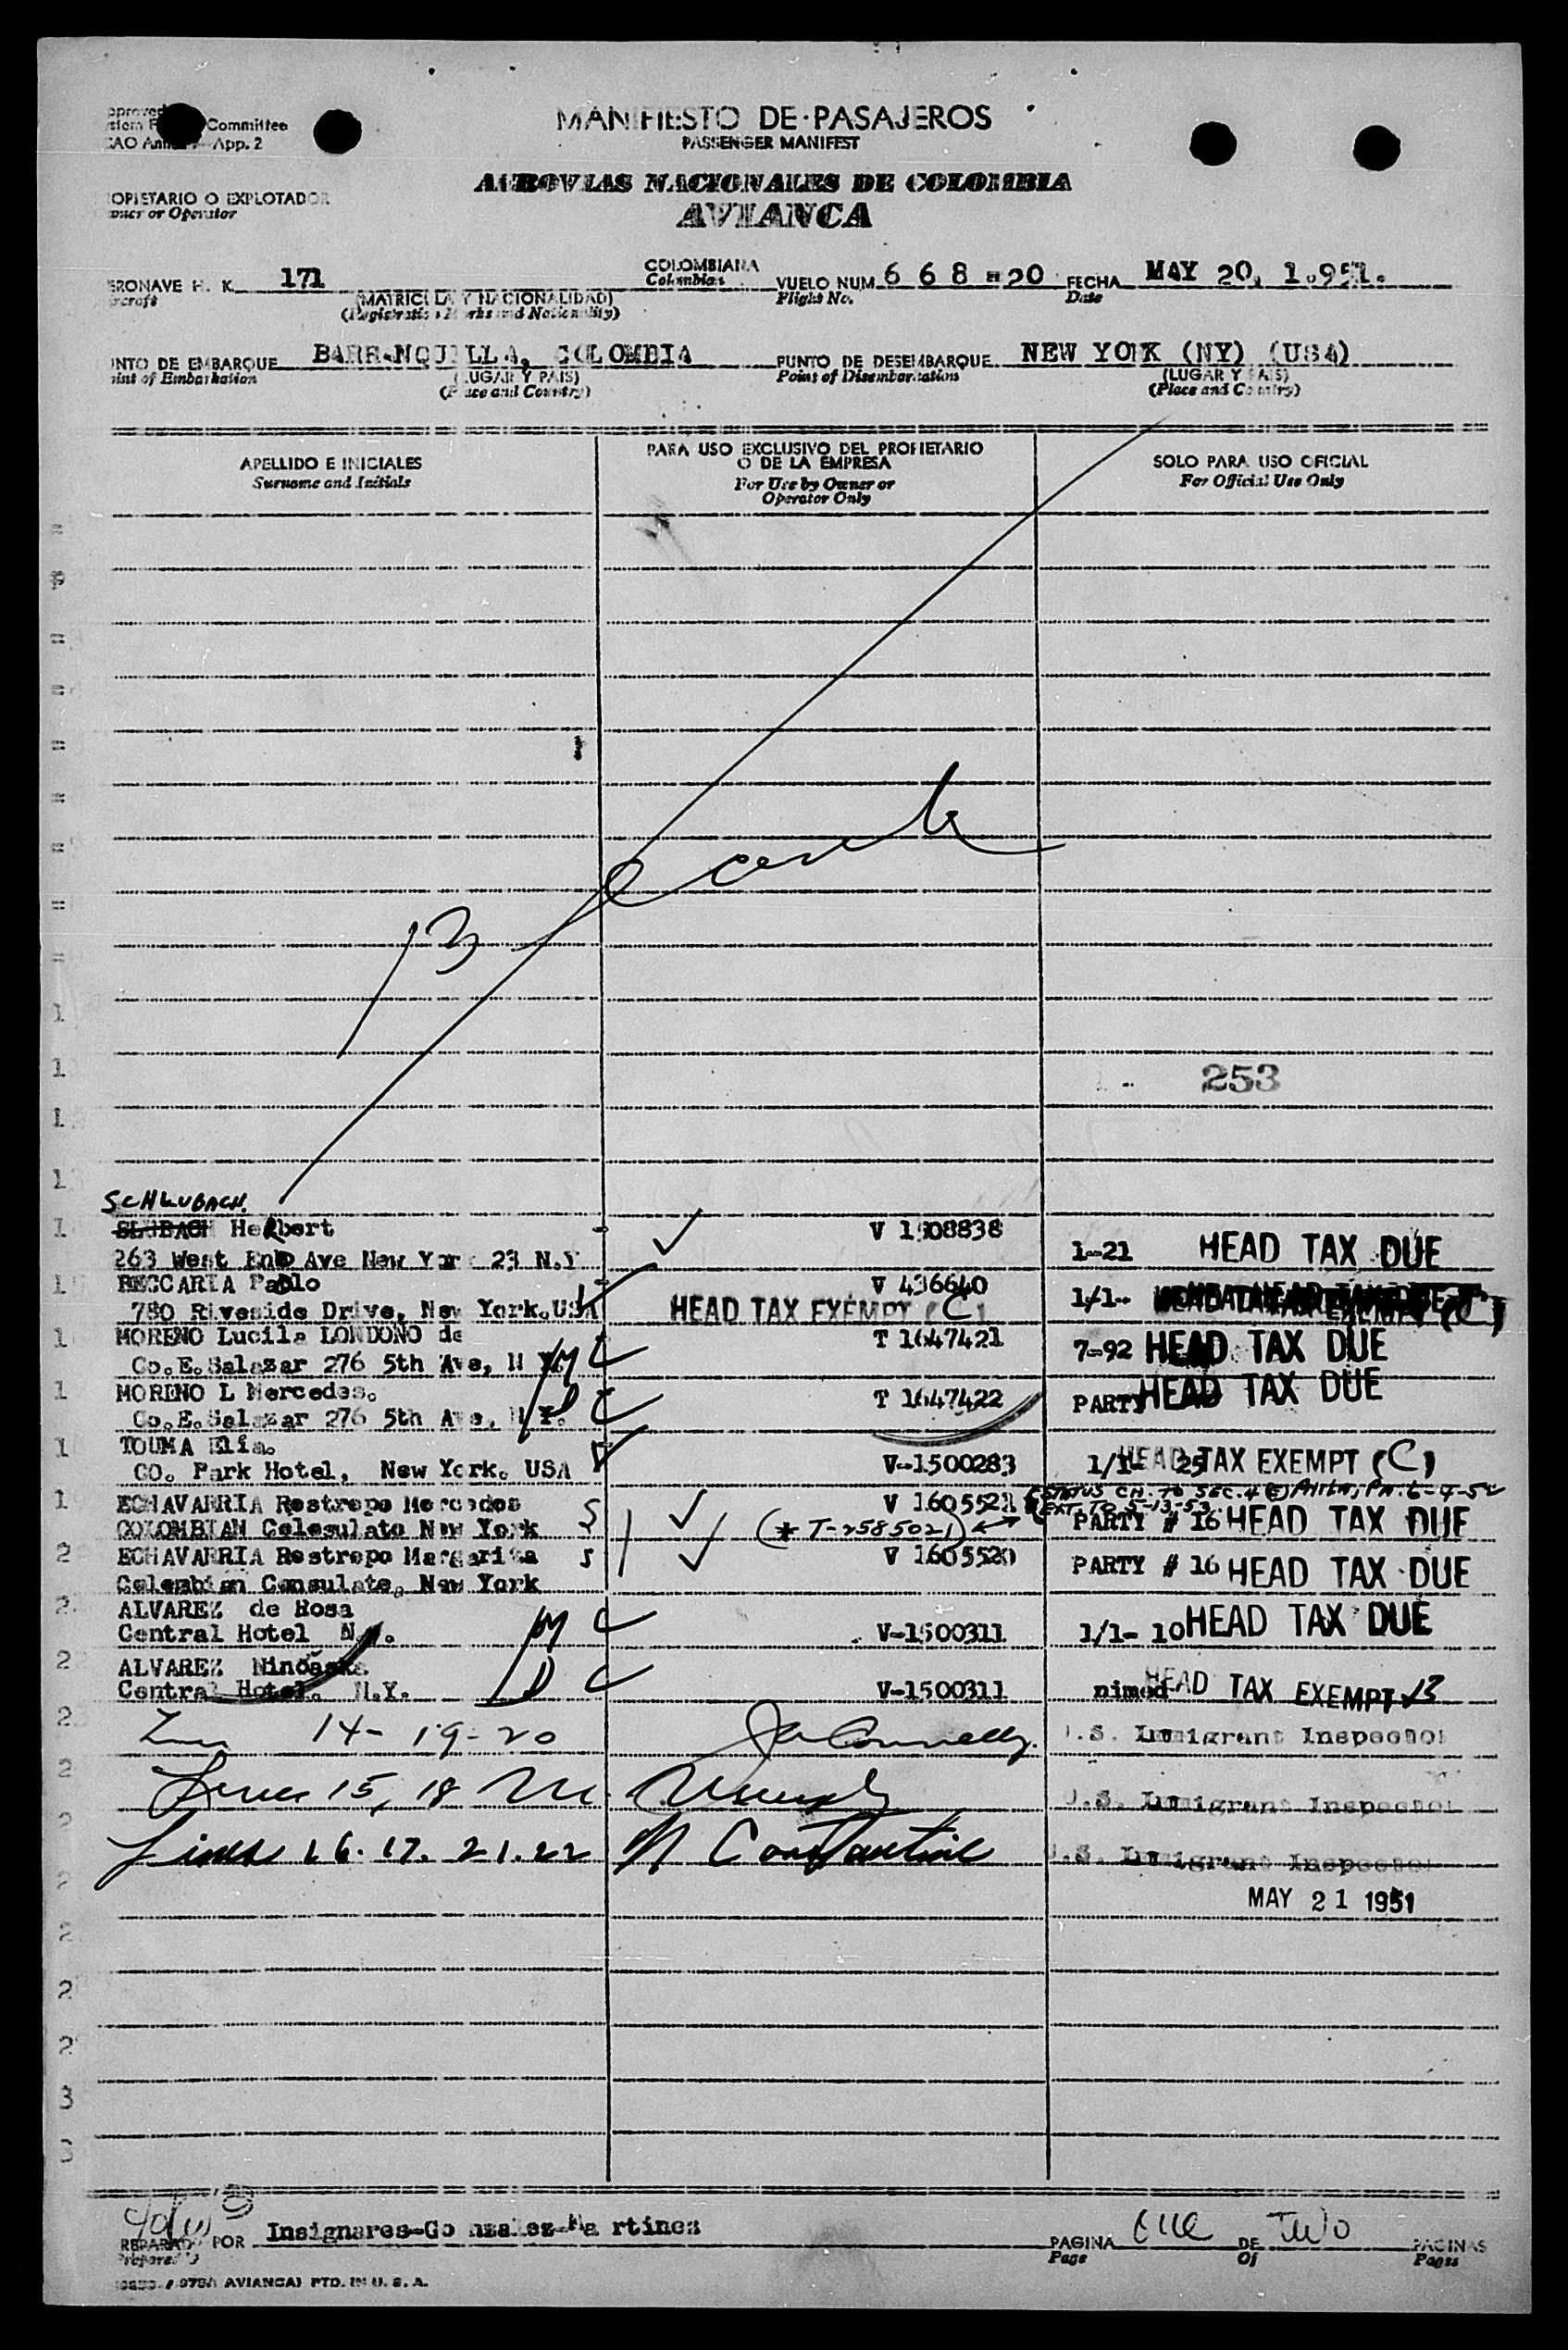 Committee
App. 2
MANIFIESTO DE PASAJEROS
PASSENGER MANIFEST
AEROVIAS NACIONALES DE COLOMBIA
AVIANCA
OPIETARIO O EXPLOTADOR
or Operator
ERONAVE H. K. 171 COLOMBIANA VUELO NUM 6 6 8 -20 FECHA MAY 20, 1.951.
Colombian Flight No. Date
(MATRICULA Y NACIONALIDAD)
(Registration Marks and Nationality)
NTO DE EMBARQUE BARRANQUILLA, COLOMBIA PUNTO DE DESEMBARQUE NEW YORK (NY) (USA)
int of Embarkation (LUGAR Y PAIS) Point of Disembarkation (LUGAR Y PAIS)
(Place and Country) (Place and Country)
APELLIDO E INICIALES PARA USO EXCLUSIVO DEL PROPIETARIO SOLO PARA USO OFICIAL
Surname and Initials O DE LA EMPRESA For Official Use Only
For Use by Owner or
Operator Only
13
253
SCHLUBACH.
SLUBACH Herbert V 1508838
263 West End Ave New York 23 N.Y 1-21 HEAD TAX DUE
BECCARIA Pablo V 436640
780 Riveside Drive, New York.USA HEAD TAX EXEMPT (C) 1/1- (C)
MORENO Lucila LONDOÑO de T 1647421
Co.E.Salazar 276 5th Ave, N Y. M C 7-92 HEAD TAX DUE
MORENO L Mercedes. T 1647422
Co.E.Salazar 276 5th Ave, N Y. D C PARTY HEAD TAX DUE
TOUMA Elia.
CO. Park Hotel, New York. USA V-1500283 1/1- 25 HEAD TAX EXEMPT (C)
ECHAVARRIA Restrepo Mercedes S V 1605521 STATUS CH. TO SEC. 4(E) PHILA, PA. 6-4-52
EXT. TO 5-13-53
COLOMBIAN Colesulate New York (* T-2585021) PARTY # 16 HEAD TAX DUE
ECHAVARRIA Restrepo Margarita S V 1605520 PARTY # 16 HEAD TAX DUE
Colombian Consulate, New York
ALVAREZ de Rosa
Central Hotel N.Y. M C V-1500311 1/1- 10 HEAD TAX DUE
ALVAREZ Ninoaska
Central Hotel. N.Y. D C V-1500311 nimed HEAD TAX EXEMPT B
14-19-20 J Connelly. U.S. Immigrant Inspector
Lines 15, 18 U.S. Immigrant Inspector
Lines 16. 17. 21. 22 N Constantine U.S. Immigrant Inspector
MAY 21 1951
REPARADO POR Insignares-Gonzalez-Martinez PAGINA one DE Two PAGINAS
Prepared Page Of Pages
AVIANCA) PTD. IN U. S. A.